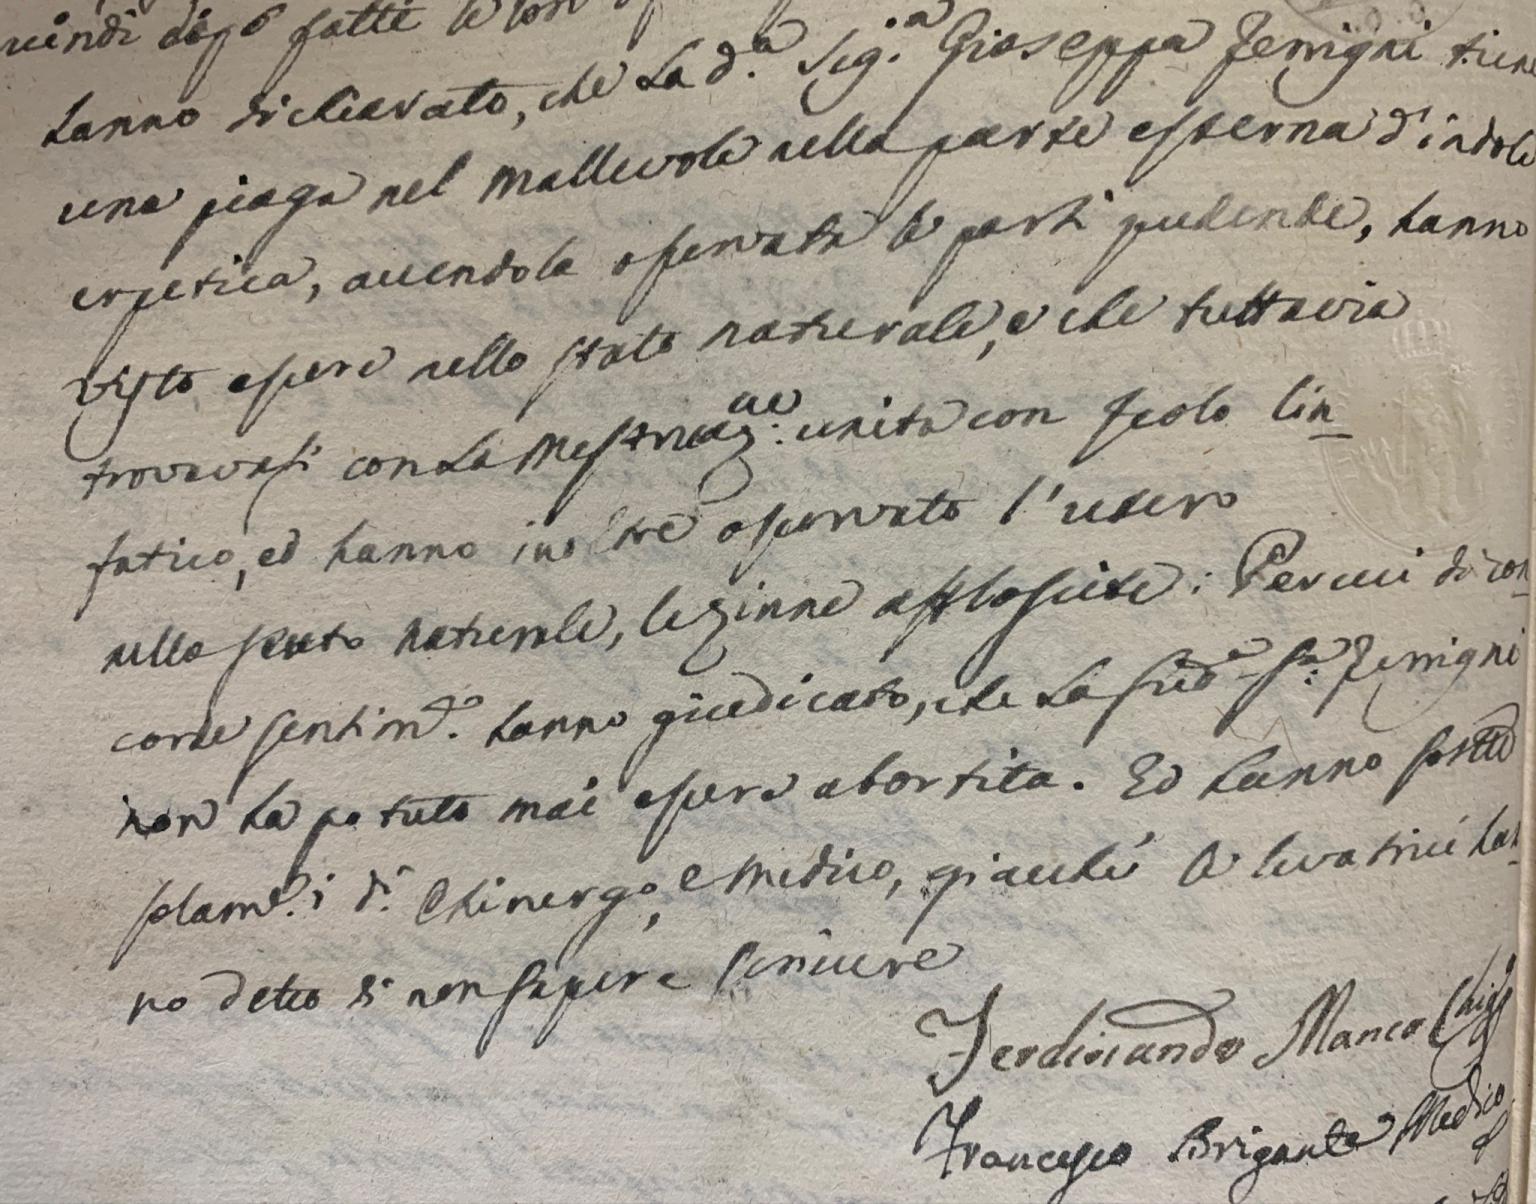 dopo fatte le loro
hanno dichiarato, che la d.a Sig.a Gioseppa Ferrigni tiene
una piaga nel mallevole nella parte esterna d'indole
erpetica, avendole osservata le parti pudende, hanno
visto essere nello stato naturale, e che tuttavia
trovavasi con la mestruaz:ne unita con scolo lin
fatico, ed hanno inoltre osservato l'utero
nello stato naturale, le zinne affloscite: Per cui di con
corde sentim.to hanno giudicato, che la sud.a S.a Ferrigni
non ha potuto mai essere abortita. Ed hanno sott.o
solam.e i d.i Chirurgo, e Medico, giacché le levatrici han
no detto di non sapere scrivere
Ferdinando Manco Chirg.o
Francesco Brigante Medico